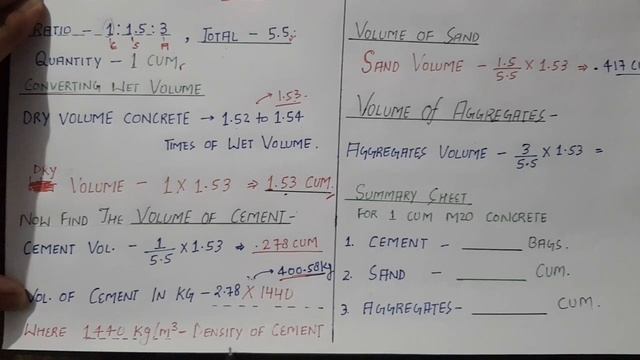 RATIO - 1:1.5:3, TOTAL - 5.5
C S A
QUANTITY - 1 CUM,
CONVERTING WET VOLUME
1.53
DRY VOLUME CONCRETE → 1.52 TO 1.54
TIMES OF WET VOLUME.
DRY
VOLUME - 1 X 1.53 ⇒ 1.53 CUM.
NOW FIND THE VOLUME OF CEMENT-
CEMENT VOL. - 1/5.5 X 1.53 ⇒ .278 CUM
400.58 kg
VOL. OF CEMENT IN KG - 2.78 X 1440
WHERE 1440 Kg/M³ - DENSITY OF CEMENT
VOLUME OF SAND
SAND VOLUME - 1.5/5.5 X 1.53 ⇒ .417 CU
VOLUME OF AGGREGATES-
AGGREGATES VOLUME - 3/5.5 X 1.53 =
SUMMARY CHEST
FOR 1 CUM M20 CONCRETE
1. CEMENT - ______ BAGS.
2. SAND - ______ CUM.
3. AGGREGATES- ______ CUM.